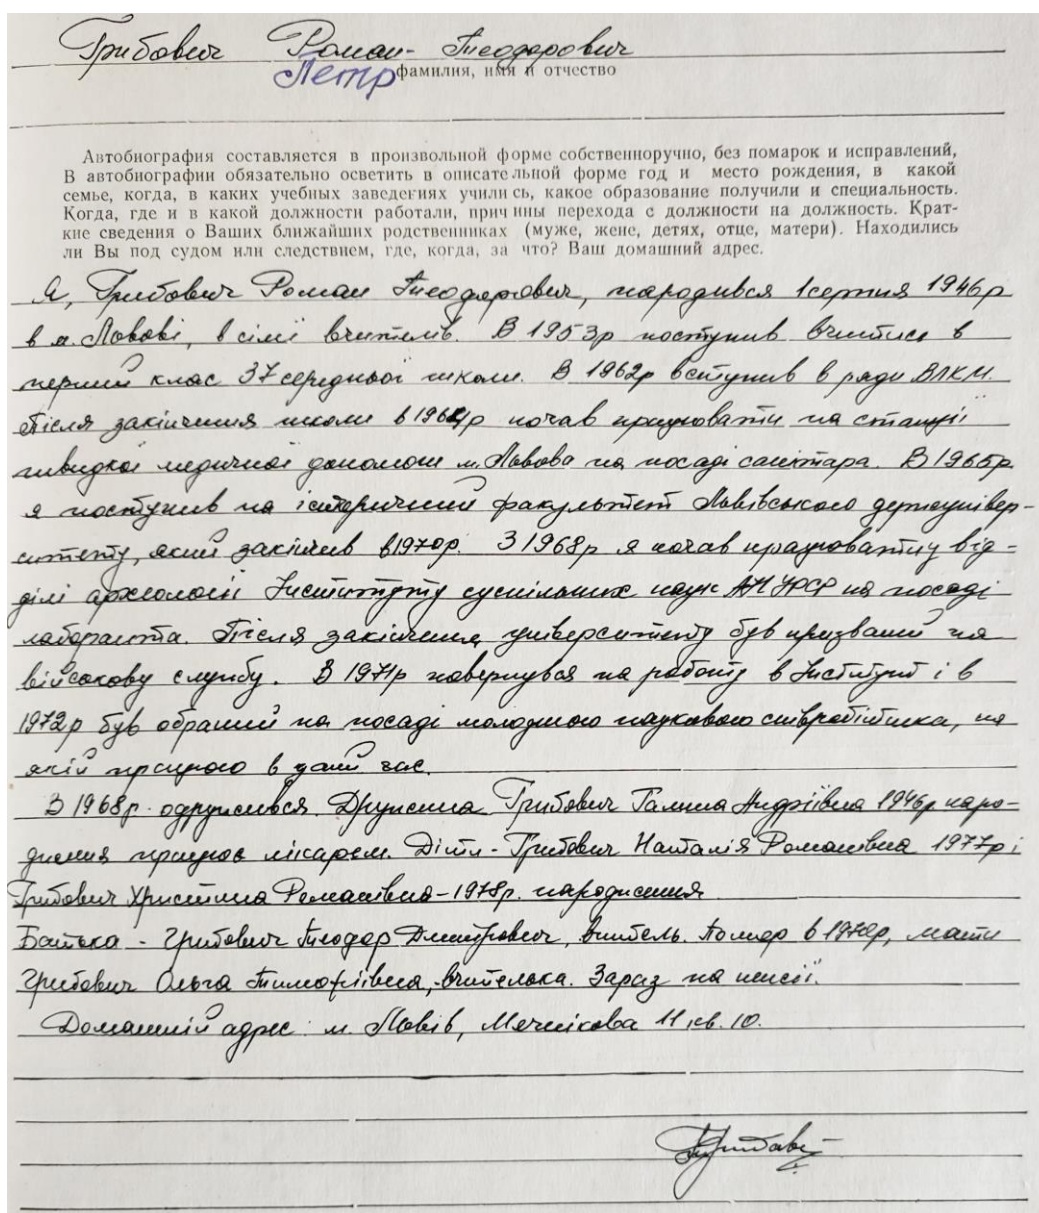 Грибович Роман- Теодорович
Петр
фамилия, имя и отчество
Автобиография составляется в произвольной форме собственноручно, без помарок и исправлений,
В автобиографии обязательно осветить в описательной форме год и место рождения, в какой
семье, когда, в каких учебных заведениях учились, какое образование получили и специальность.
Когда, где и в какой должности работали, причины перехода с должности на должность. Крат-
кие сведения о Ваших ближайших родственниках (муже, жене, детях, отце, матери). Находились
ли Вы под судом или следствием, где, когда, за что? Ваш домашний адрес.
Я, Грибович Роман Теодорович, народився 1 серпня 1946р
в м. Львові, в сім'ї вчителів. В 1953р поступив вчитись в
перший клас 37 середньої школи. В 1962р вступив в ряди ВЛКМ.
Після закінчення школи в 1964р почав працювати на станції
швидкої медичної допомоги м. Львова на посаді санітара. В 1965р.
я поступив на історичний факультет Львівського держунівер-
ситету, який закінчив в 1970р. З 1968р я почав працювати у від-
ділі археології Інституту суспільних наук АН УРСР на посаді
лаборанта. Після закінчення університету був призваний на
військову службу. В 1971р повернувся на роботу в Інститут і в
1972р був обраний на посаді молодшого наукового співробітника, на
якій працюю в даний час.
З 1968р. одружився. Дружина Грибович Галина Андріївна 1946р наро-
дження працює лікарем. Діти - Грибович Наталія Романівна 1977р і
Грибович Христина Романівна - 1978р. народження
Батько - Грибович Теодор Дмитрович, вчитель. Помер в 1972р, мати
Грибович Ольга Тимофіївна, - вчителька. Зараз на пенсії.
Домашній адрес: м. Львів, Мечнікова 11, кв. 10.